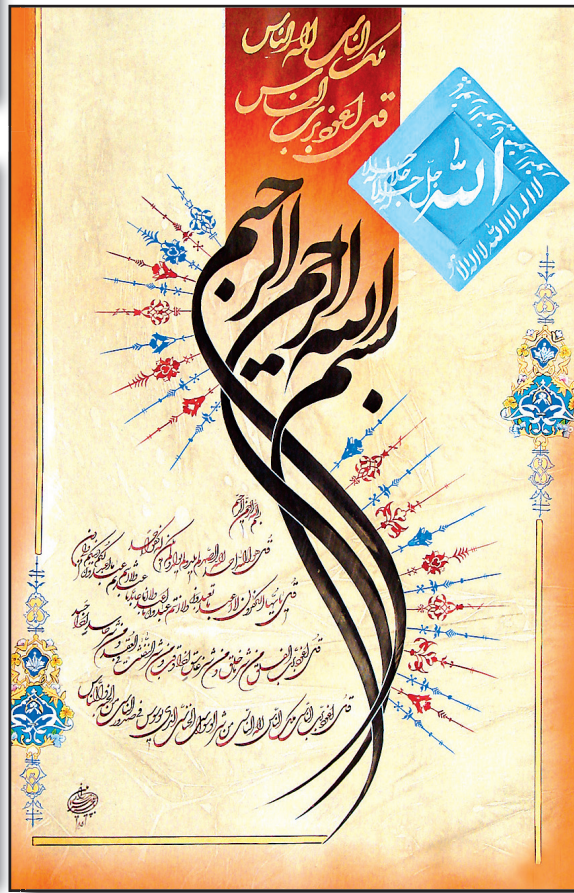 ملك الناس اله الناس
قل اعوذ برب الناس
الله جل جلاله
لا اله الا الله لا اله الا
بسم الله الرحمن الرحيم
بسم الله الرحمن الرحيم
قل هو الله احد الله الصمد لم يلد ولم يولد ولم يكن له كفوا احد
قل يا ايها الكافرون لا اعبد ما تعبدون ولا انتم عابدون ما اعبد ولا انا عابد ما عبدتم ولا انتم عابدون ما اعبد لكم دينكم ولي دين
قل اعوذ برب الفلق من شر ما خلق ومن شر غاسق اذا وقب ومن شر النفثت في العقد ومن شر حاسد اذا حسد
قل اعوذ برب الناس ملك الناس اله الناس من شر الوسواس الخناس الذي يوسوس في صدور الناس من الجنة والناس